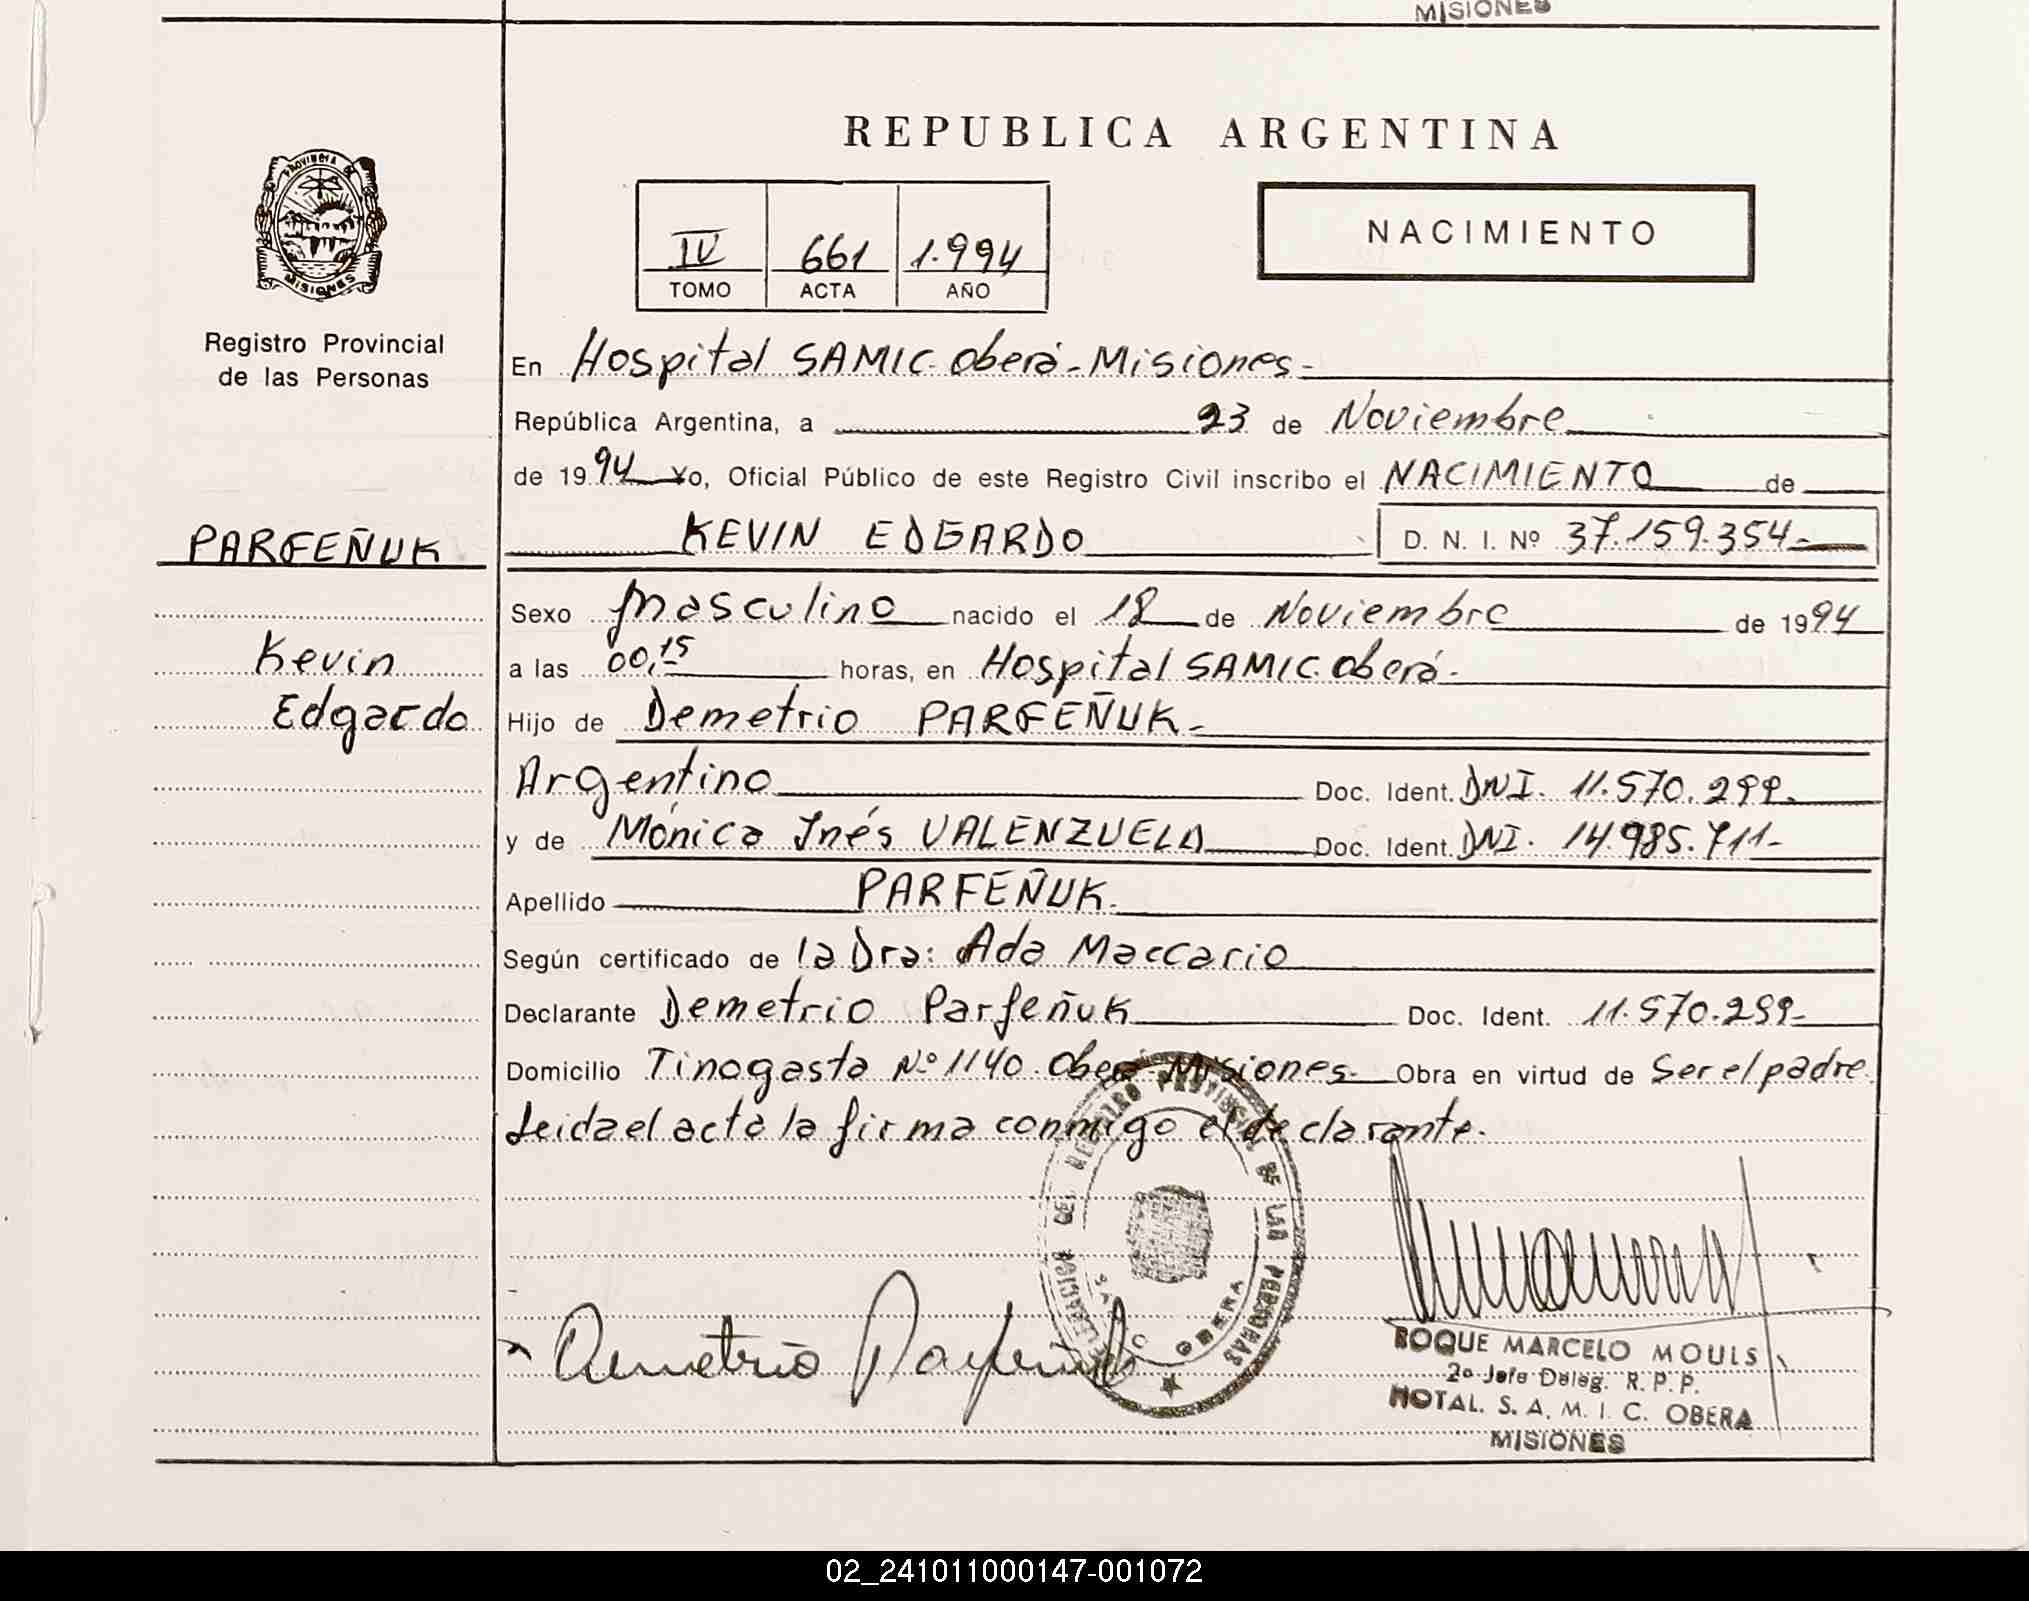 MISIONES
REPUBLICA ARGENTINA
PROVINCIA DE
MISIONES
Registro Provincial
de las Personas
IV 661 1.994
TOMO ACTA AÑO
NACIMIENTO
En Hospital SAMIC. Oberá-Misiones-
República Argentina, a 23 de Noviembre
de 1994 Yo, Oficial Público de este Registro Civil inscribo el NACIMIENTO de
PARFEÑUK
KEVIN EDGARDO D. N. I. Nº 37.159.354-
Sexo masculino nacido el 18 de Noviembre de 1994
Kevin
a las 00,15 horas, en Hospital SAMIC. Oberá-
Edgardo
Hijo de Demetrio PARFEÑUK-
Argentino Doc. Ident. DNI. 11.570.299-
y de Mónica Inés VALENZUELA Doc. Ident. DNI. 14.985.711-
Apellido PARFEÑUK.
Según certificado de la Dra: Ada Maccario
Declarante Demetrio Parfeñuk Doc. Ident. 11.570.299-
Domicilio Tinogasta Nº 1140. Oberá-Misiones- Obra en virtud de Ser el padre.
Leida el acta la firma conmigo el declarante.
DELEGACION DEL REGISTRO PROVINCIAL DE LAS PERSONAS
S.A.M.I.C. OBERA
Demetrio Parfeñuk
ROQUE MARCELO MOULS
2º Jefe Deleg. R. P. P.
HOTAL. S. A. M. I. C. OBERA
MISIONES
02_241011000147-001072